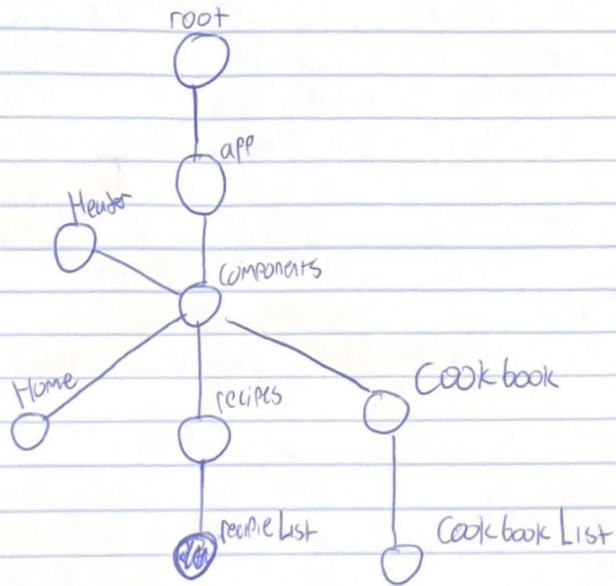 root
app
Header
Components
Home
recipes
Cookbook
recipie List
Cookbook List